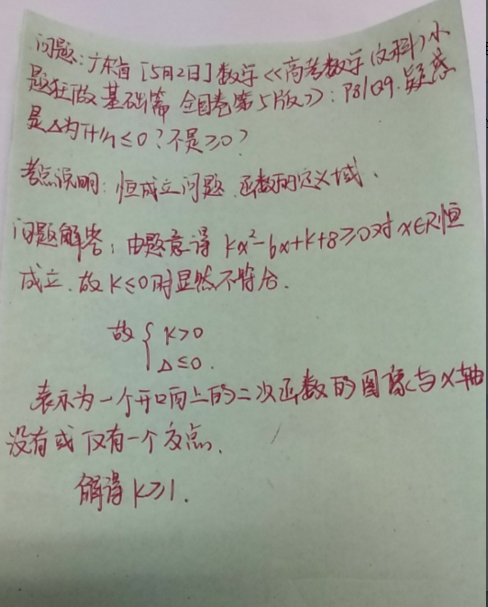 问题:广东省[5月2日]数学<<高考数学(文科)小
题狂做 基础篇 全国卷第5版>>:P8/Q9.疑惑
是△为什么≤0?不是≥0?
考点说明:恒成立问题.函数的定义域.
问题解答:由题意得 kx²-6x+k+8≥0对x∈R恒
成立.故k≤0时显然不符合.
故{k>0
△≤0.
表示为一个开口向上的二次函数的图象与x轴
没有或仅有一个交点.
解得k≥1.